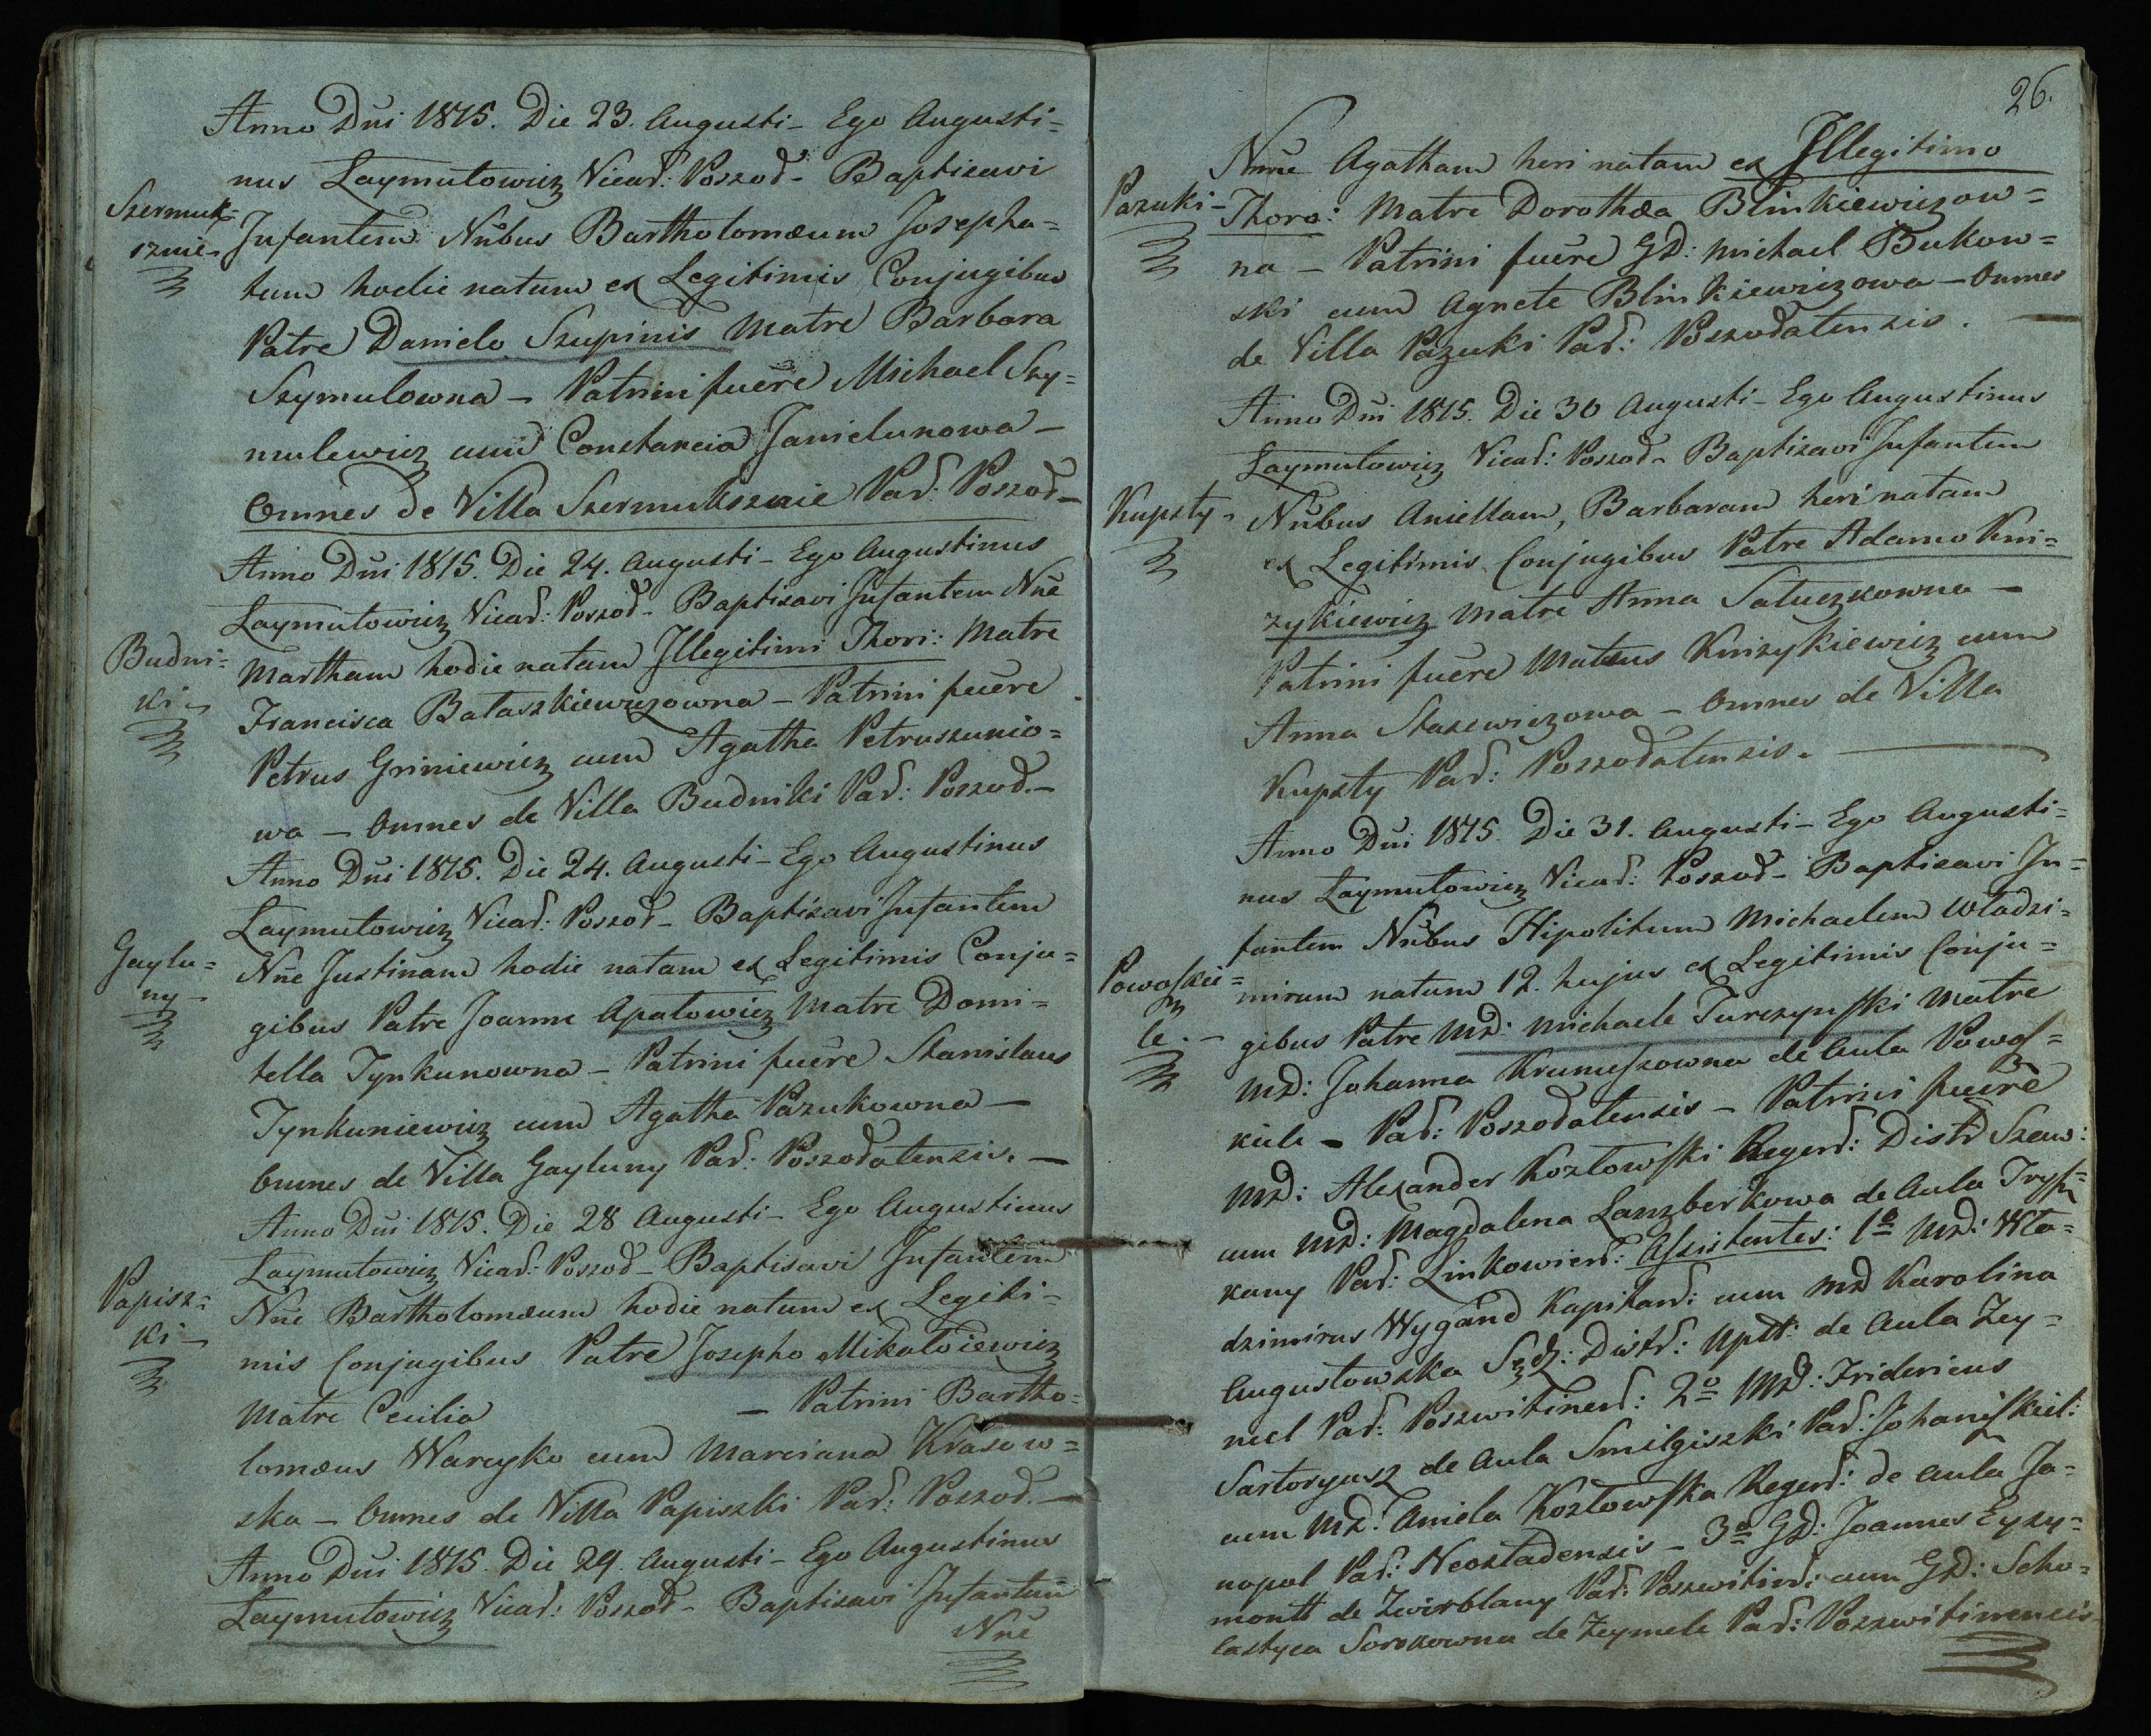 Anno Dni 1815. Die 23. Augusti - Ego Augusti=
nus Laymutowicz Vicar: Poszod - Baptizavi
Szermuk=
sznie -
Infantem Nnibus Bartholomæum Josepha=
tum hodie natum ex Legitimis Conjugibus
Patre Daniele Szupinis Matre Barbara
Szymulowna - Patrini fuere Michael Szy=
mulewicz cum Constancia Janielunowa -
Omnes de Villa Szermuksznie Par: Poszod -
Anno Dni 1815. Die 24. Augusti - Ego Augustinus
Laymutowicz Vicar: Poszod - Baptizavi Infantem Nne
Budni=
ki -
Martham hodie natam Illegitimi Thori: Matre
Francisca Bataszkiewiczowna - Patrini fuere
Petrus Griniewicz cum Agatha Petruszunio=
wa - Omnes de Villa Budniki Par: Poszod. -
Anno Dni 1815. Die 24. Augusti - Ego Augustinus
Laymutowicz Vicar: Poszod - Baptizavi Infantem
Gaylu=
ny -
Nne Justinam hodie natam ex Legitimis Conju=
gibus Patre Joanne Apatowicz Matre Domi=
tella Tynkunowna - Patrini fuere Stanislaus
Tynkuniewicz cum Agatha Pazukowna -
Omnes de Villa Gayluny Par: Poszodatensis. -
Anno Dni 1815. Die 28 Augusti - Ego Augustinus
Laymutowicz Vicar: Poszod - Baptisavi Infantem
Papisz=
ki -
Nne Bartholomæum hodie natum ex Legiti=
mis Conjugibus Patre Josepho Mikatoiewicz
Matre Cecilia - Patrini Bartho=
lomæus Warcyko cum Marciana Krasow=
ska - Omnes de Villa Papiszki Par: Poszod. -
Anno Dni 1815. Die 29. Augusti - Ego Augustinus
Laymutowicz Vicar: Poszod - Baptizavi Infantem
Nne
26.
Nme Agatham heri natam ex Illegitimo
Pazuki -
Thoro: Matre Dorothæa Blinkiewiczow=
na - Patrini fuere GD: Michael Bukow=
ski cum Agnete Blinkiewiczowa - Omnes
de Villa Pazuki Par: Poszodatensis.
Anno Dni 1815. Die 30 Augusti - Ego Augustinus
Laymutowicz Vicar: Poszod - Baptizavi Infantem
Kupsty -
Nnibus Aniellam, Barbaram heri natam
ex Legitimis Conjugibus Patre Adamo Kni=
zykiewicz Matre Anna Satuczkowna -
Patrini fuere Mateus Knizykiewicz cum
Anna Stasewiczowa - Omnes de Villa
Kupsty Par: Poszodatensis.
Anno Dni 1815. Die 31. Augusti - Ego Augusti=
nus Laymutowicz Vicar: Poszod - Baptizavi In=
fantem Nnibus Hipolitum Michaelem Wladzi=
Powoſkie=
le. -
mirum natum 12. hujus ex Legitimis Conju=
gibus Patre MD: Michaele Turczynſki Matre
MD: Johanna Krumuſzowna de Aula Powoſ=
kiele - Par: Poszodatensis - Patrini fuere
MD: Alexander Kozłowſki Regens: Distr Szaw:
cum MD: Magdalena Lanzberkowa de Aula Tryſz
kany Par: Linkowiens: Aſsistentes: 1º MD: Wła=
dzimirus Wygand Kapitan: cum MD Karolina
Augustowska Sędz: Distr: Upit: de Aula Zey=
mel Par: Poszwitinens: 2º MD: Fridericus
Sartoryusz de Aula Smilgiszki Par: Johaniſkiel:
cum MD: Aniela Kozłowſka Regens: de Aula Ja=
nopol Par: Neostadensis - 3º GD: Joannes Eyzy=
montt de Zwirblany Par: Poszwitin: cum GD: Scho=
lastyca Sorokowna de Zeymele Par: Poszwitinensis